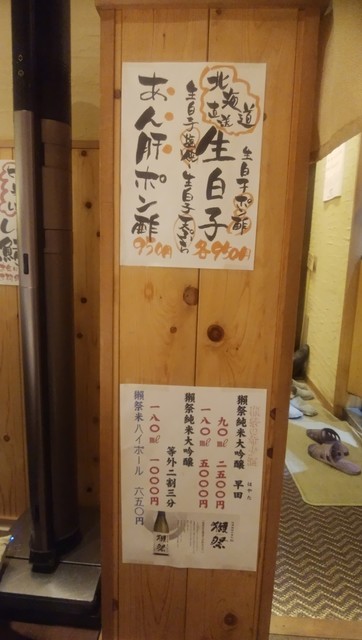 北海道
直送
生白子
生白子ポン酢
生白子天ぷら
各950円
あん肝ポン酢
950円
獺祭純米大吟醸 早田
はやた
九〇㎖ 二五〇〇円
一八〇㎖ 五〇〇〇円
獺祭純米大吟醸
等外二割三分
一八〇㎖ 一〇〇〇円
獺祭米ハイボール 六五〇円
獺祭